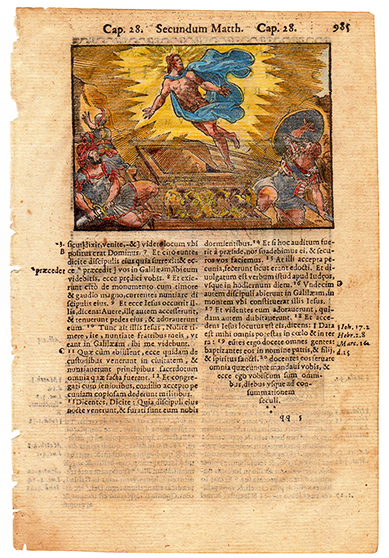 Cap. 28. Secundum Matth. Cap. 28. 985
sicut dixit, venite, & videte locum vbi
B positus erat Dominus. 7 Et cito euntes
dicite discipulis eius quia surrexit: & ecce
præcedet cc præcedit vos in Galilæam, ibi eum
videbitis, ecce prædixi vobis. 8 Et exie-
runt citò de monumento cum timore et
& gaudio magno, currentes nuntiare di-
scipulis eius. 9 Et ecce Iesus occurrit il-
lis, dicens: Auete. Illæ autem accesserunt,
& tenuerunt pedes eius & adorauerunt
eum. 10 Tunc ait illis Iesus. Nolite ti-
mere, ite, nuntiate fratribus meis, vt
eant in Galilæam, ibi me videbunt.
C 11 Quæ cùm abiissent, ecce quidam de
custodibus venerunt in ciuitatem, &
nuntiauerunt principibus sacerdotum
omnia quæ facta fuerant. 12 Et congre-
gati cum senioribus, consilio accepto pe-
cuniam copiosam dederunt militibus.
13 Dicentes, Dicite: Quia discipuli eius
nocte venerunt, & furati sunt eum nobis
dormientibus. 14 Et si hoc auditum fue-
rit à præside, nos suadebimus ei, & secu-
ros vos faciemus. 15 At illi accepta pe-
cunia, fecerunt sicut erant edocti. Et di-
uulgatum est verbum istud apud Iudæos,
vsque in hodiernum diem. 16 Vndecim D
autem discipuli abierunt in Galilæam, in
montem vbi constituerat illis Iesus.
17 Et videntes eum adorauerunt, qui-
dam autem dubitauerunt. 18 Et acce-
dens Iesus locutus est eis, dicens: Data Ioh. 17.2
est mihi omnis potestas in cœlo & in ter- Heb. 2.8
ra: 19 euntes ergo docete omnes gentes: Marc. 16
baptizantes eos in nomine patris, & filij, d.15
& spiritus sancti. 20 docentes eos seruare
omnia quæcunque mandaui vobis, &
ecce ego vobiscum sum omni-
bus diebus vsque ad con-
summationem
seculi.
qq 5